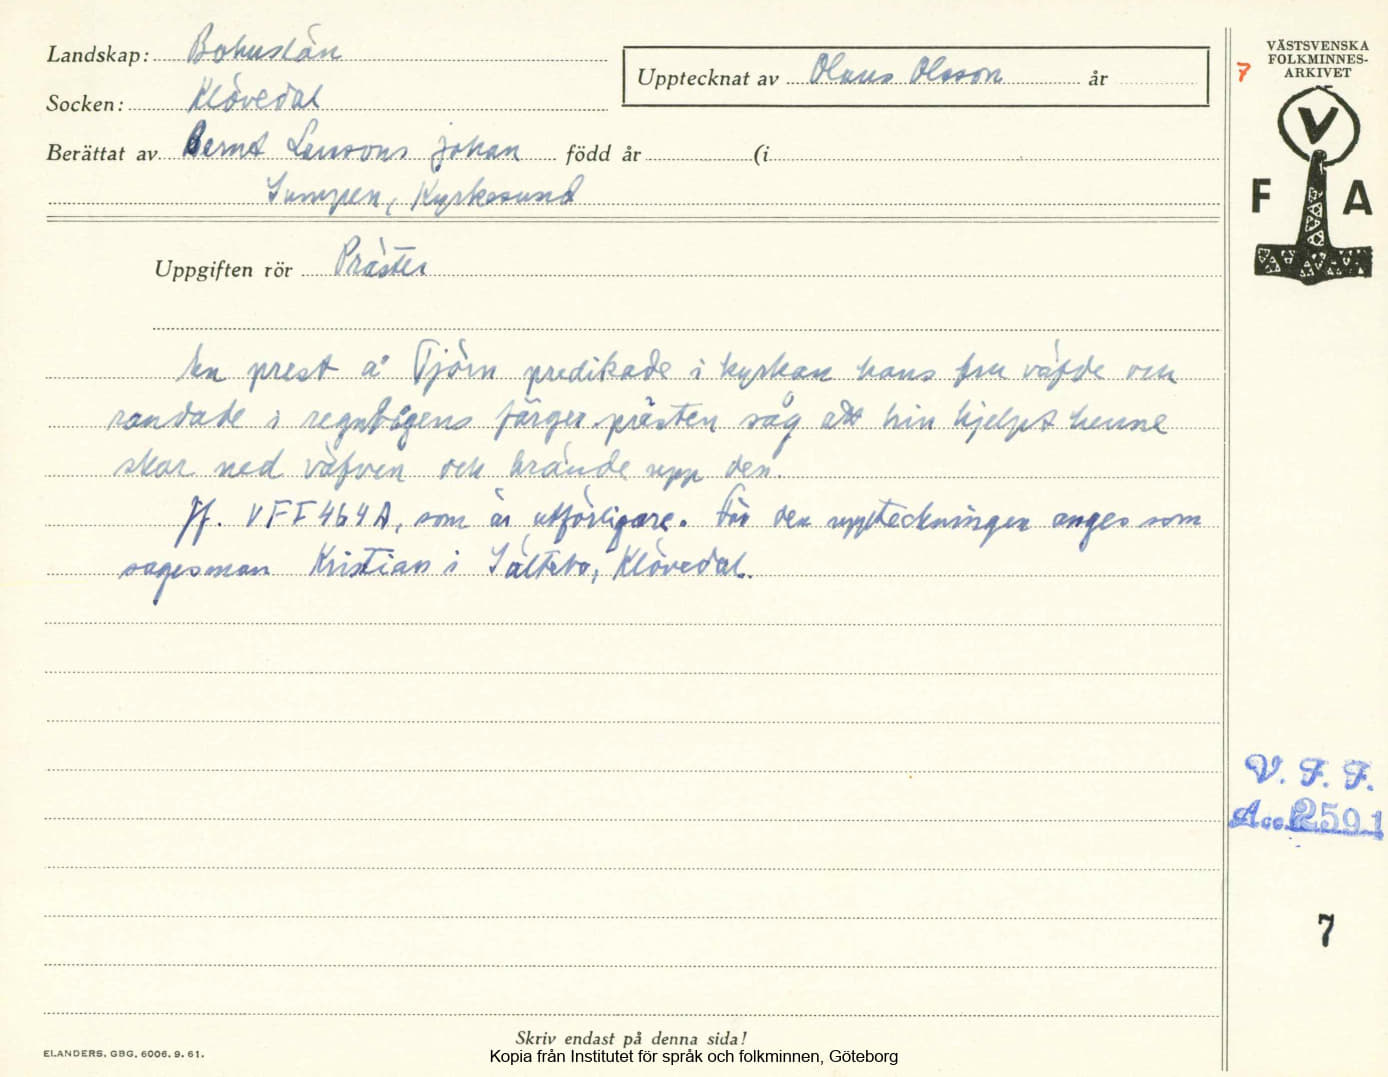 Landskap: Bohuslän
Socken: Klövedal
Berättat av Bernt Larsons johan född år (i
Sumpen, Kyrkesund
Upptecknat av Olaus Olsson år
7
VÄSTSVENSKA
FOLKMINNES-
ARKIVET
V
F A
Uppgiften rör Präster
En prest å Tjörn predikade i kyrkan hans fru väfde och
randade i regnbågens färger prästen såg att hin hjelpt henne
skar ned väfven och brände upp den.
Jf. VFF 464A, som är utförligare. För den uppteckningen anges som
sagesman Kristian i Sältebo, Klövedal.
V. F. F.
Acc. 2591
7
Skriv endast på denna sida!
ELANDERS, GBG, 6006. 9. 61.
Kopia från Institutet för språk och folkminnen, Göteborg